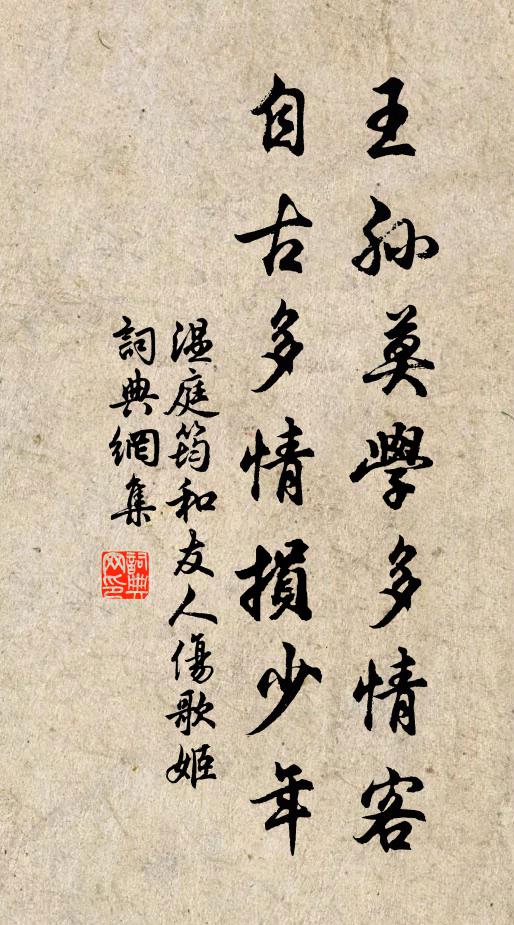 王孫莫學多情客
自古多情損少年
溫庭筠和友人傷歌姬
詞典網集
詞典網印